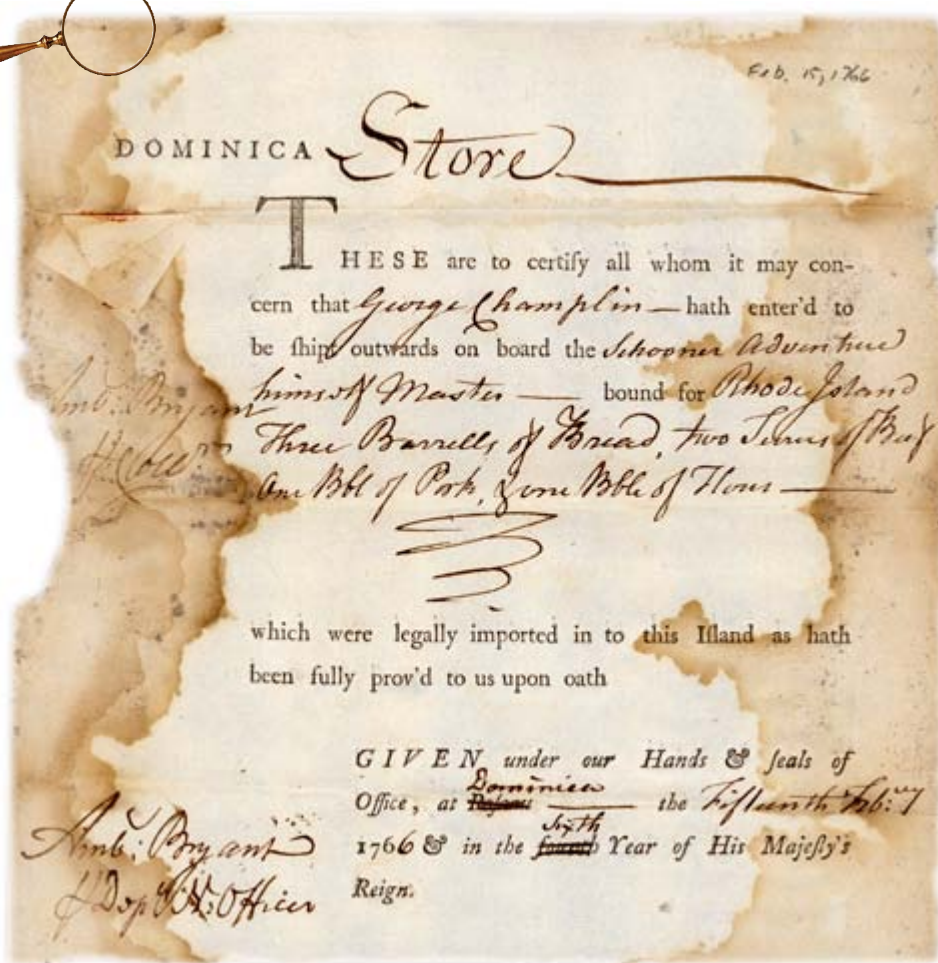 Feb. 15, 1766
DOMINICA Store
THESE are to certify all whom it may con-
cern that George Champlin — hath enter'd to
be ſhipt outwards on board the Schooner Adventure
himself Master — bound for Rhode Island
Three Barrells of Bread, two Tierces of Beef
One Bbl of Pork, & one Bble of Flour —
which were legally imported in to this Iſland as hath
been fully prov'd to us upon oath
GIVEN under our Hands & ſeals of
Dominica
Office, at — the Fifteenth Feb:ry
Sixth
1766 & in the fourth Year of His Majeſly's
Reign.
Amb: Bryant
Dep N: Officer
Amb: Bryant